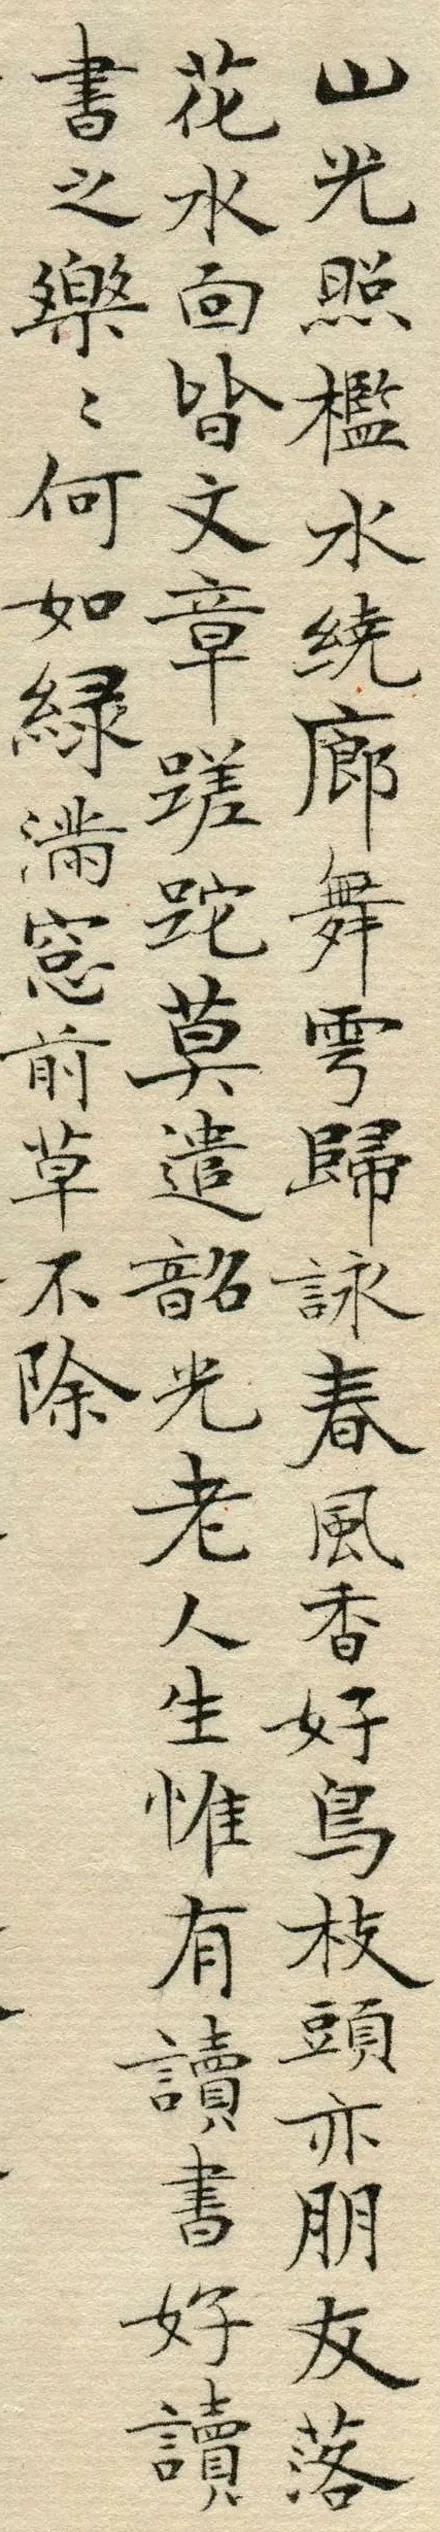 山光照檻水繞廊舞雩歸詠春風香好鳥枝頭亦朋友落
花水面皆文章蹉跎莫遣韶光老人生惟有讀書好讀
書之樂〻何如綠滿窓前草不除